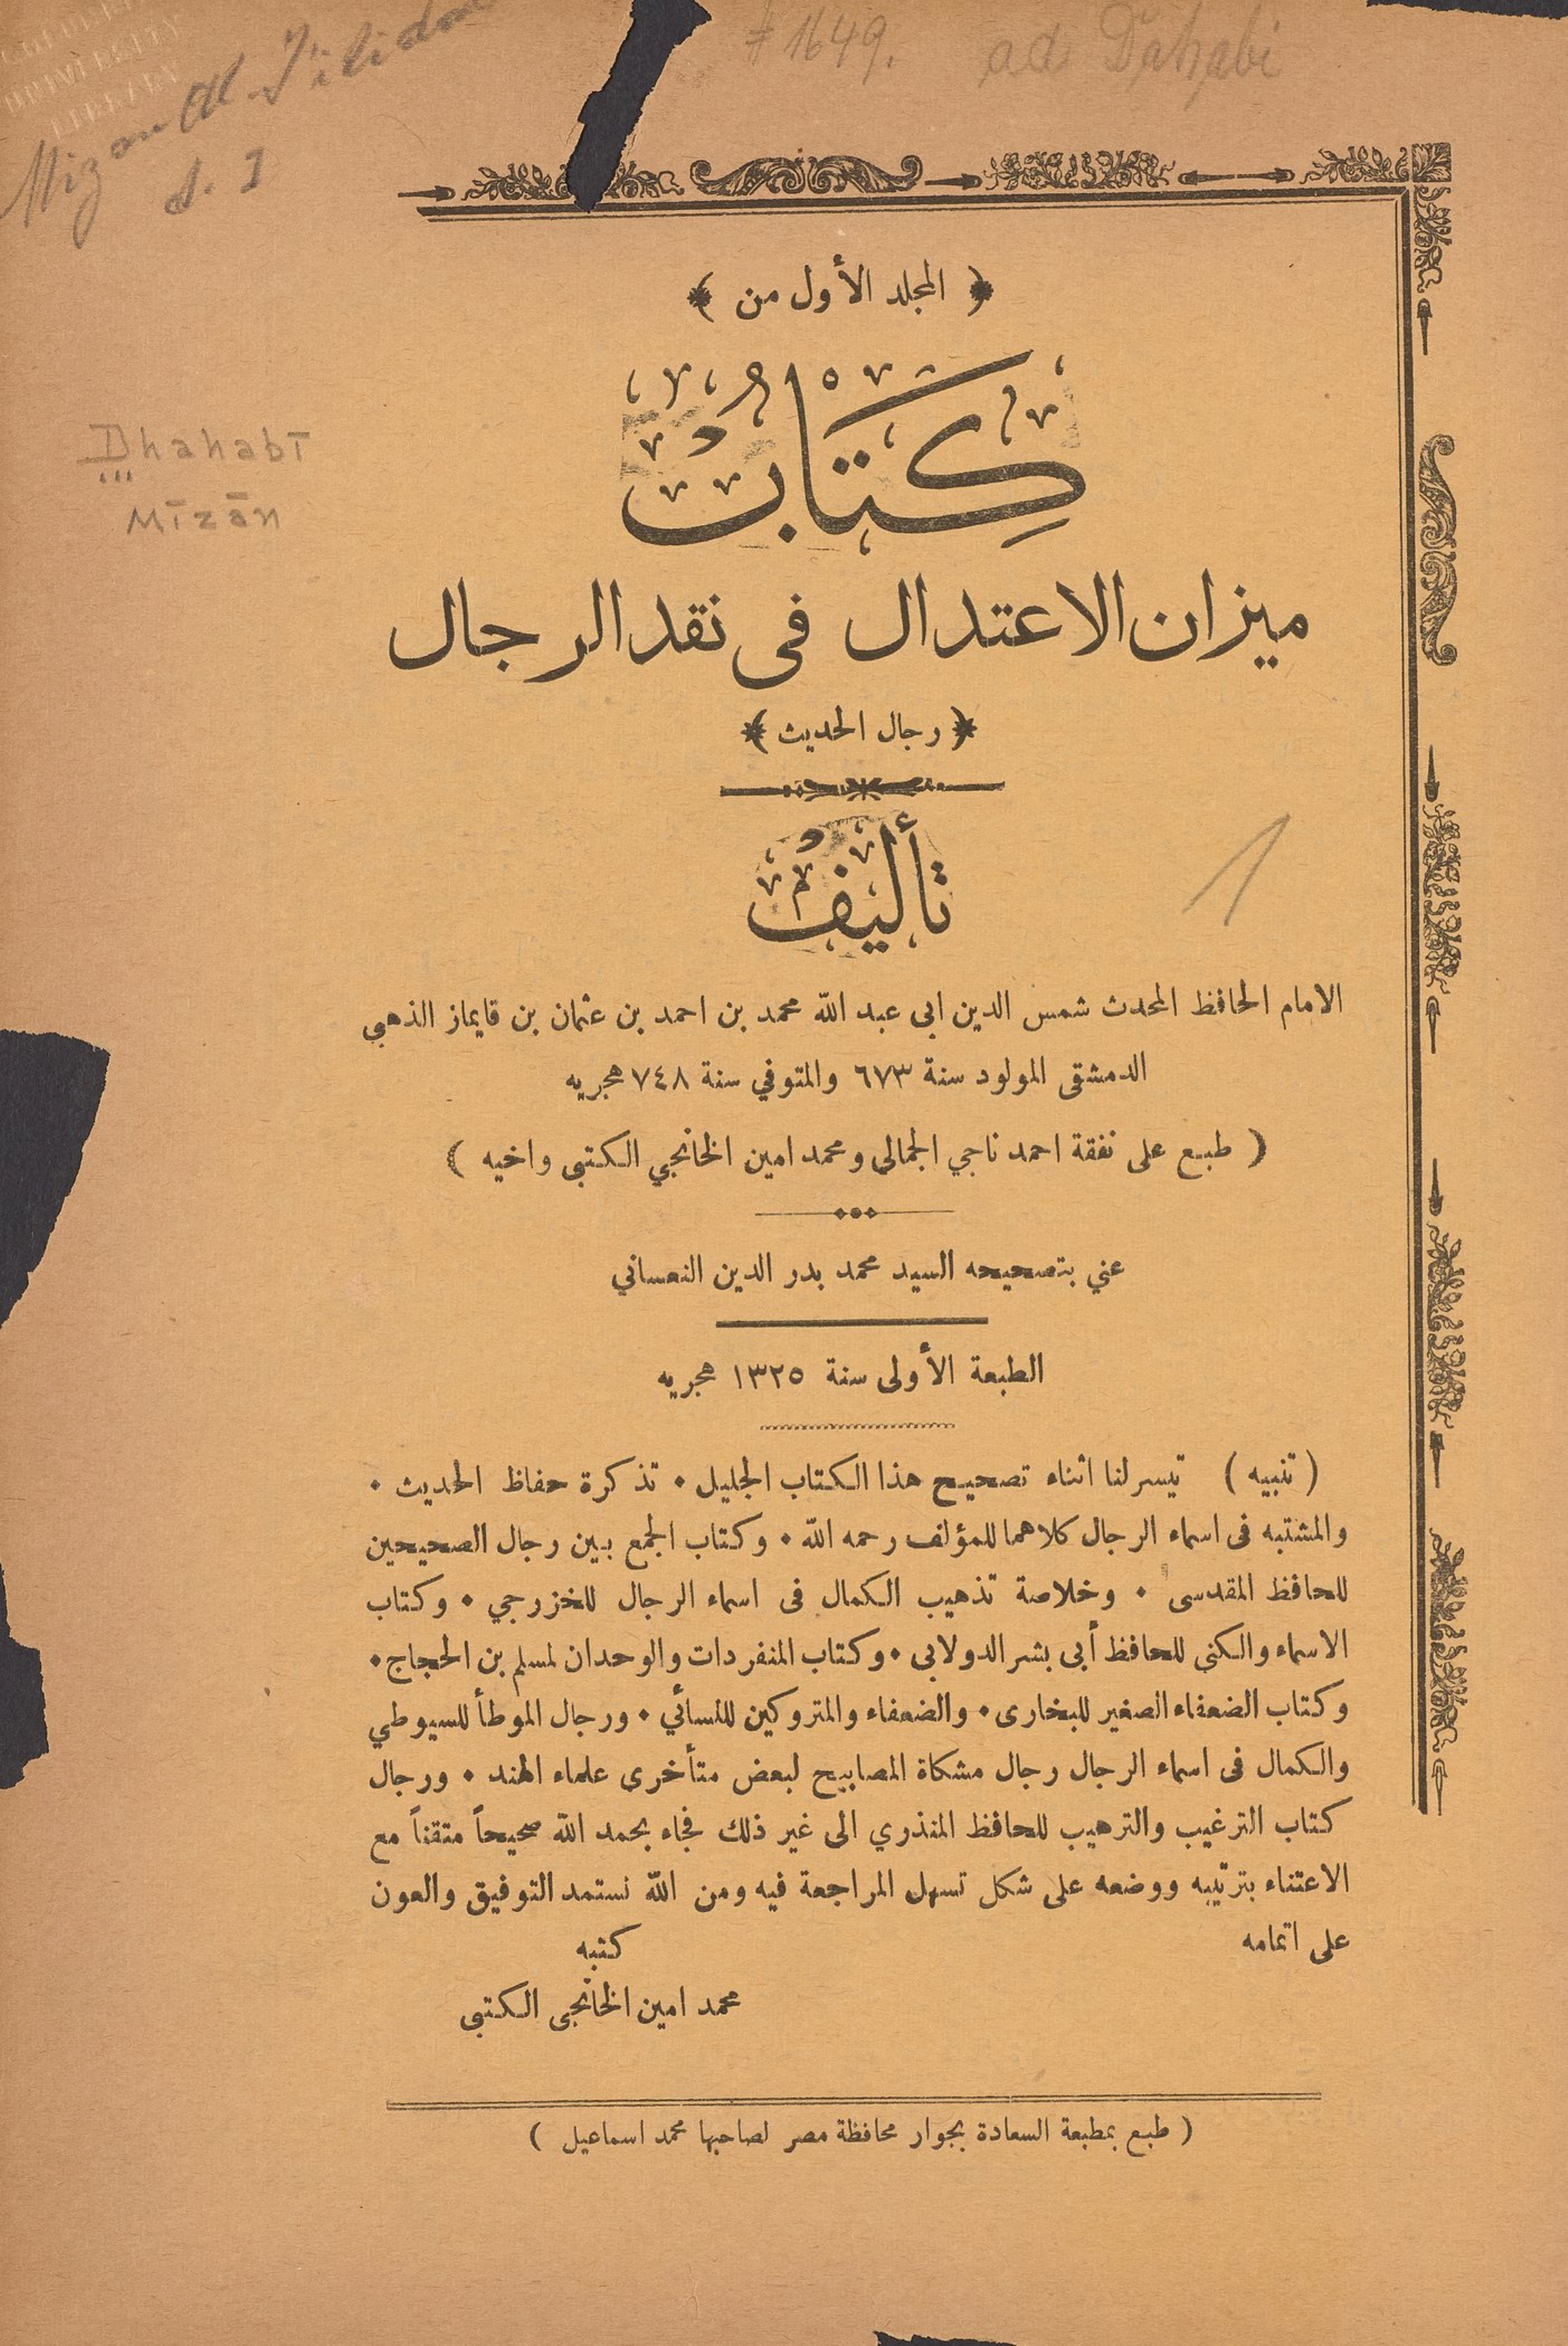 # 1649. ad Dahabi
Mizan al-I'tidal
d. I
﴿ المجلد الأول من ﴾
كِتَابُ
Dhahabī
Mīzān
ميزان الاعتدال فى نقد الرجال
﴿ رجال الحديث ﴾
تأليف
1
الامام الحافظ المحدث شمس الدين ابى عبد الله محمد بن احمد بن عثمان بن قايماز الذهبى
الدمشقى المولود سنة ٦٧٣ والمتوفي سنة ٧٤٨ هجريه
( طبع على نفقة احمد ناجي الجمالى ومحمد امين الخانجي الكتبى واخيه )
عني بتصحيحه السيد محمد بدر الدين النعساني
الطبعة الأولى سنة ١٣٢٥ هجريه
( تنبيه ) تيسر لنا اثناء تصحيح هذا الكتاب الجليل • تذكرة حفاظ الحديث •
والمشتبه فى اسماء الرجال كلاهما للمؤلف رحمه الله • وكتاب الجمع بين رجال الصحيحين
للحافظ المقدسى • وخلاصة تذهيب الكمال فى اسماء الرجال للخزرجي • وكتاب
الاسماء والكنى للحافظ أبى بشر الدولابى • وكتاب المنفردات والوحدان لمسلم بن الحجاج •
وكتاب الضعفاء الصغير للبخارى • والضعفاء والمتروكين للنسائي • ورجال الموطأ للسيوطي
والكمال فى اسماء الرجال رجال مشكاة المصابيح لبعض متأخرى علماء الهند • ورجال
كتاب الترغيب والترهيب للحافظ المنذري الى غير ذلك فجاء بحمد الله صحيحاً متقناً مع
الاعتناء بترتيبه ووضعه على شكل تسهل المراجعة فيه ومن الله نستمد التوفيق والعون
على اتمامه
كتبه
محمد امين الخانجى الكتبى
( طبع بمطبعة السعادة بجوار محافظة مصر لصاحبها محمد اسماعيل )